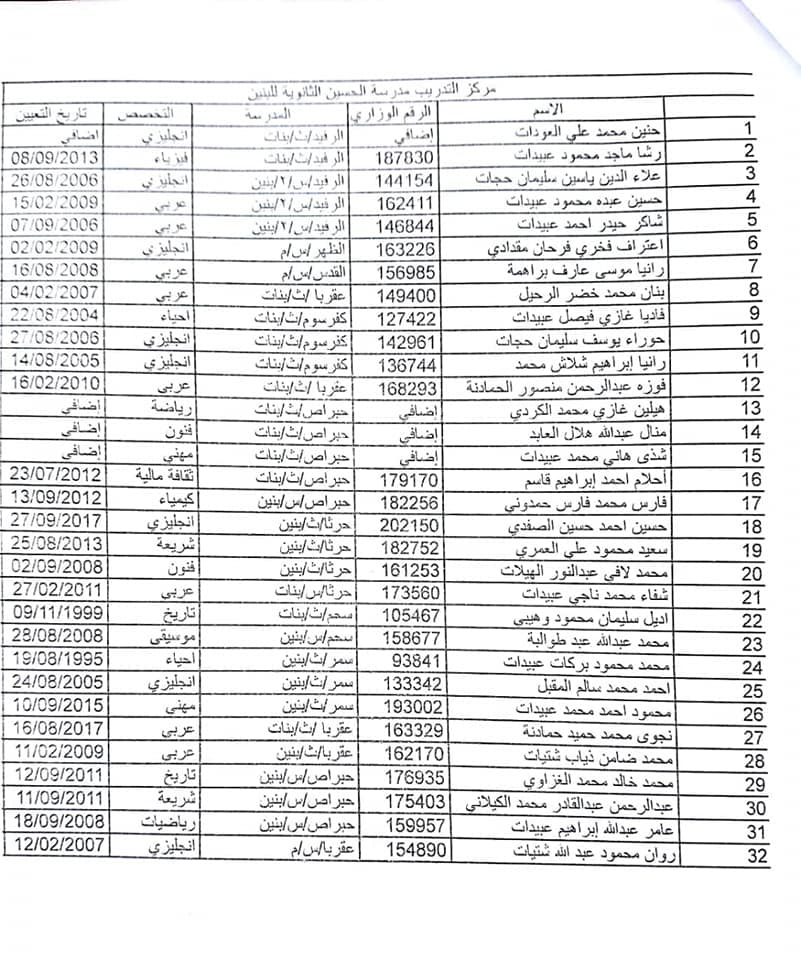 مركز التدريب مدرسة الحسين الثانوية للبنين
الاسم الرقم الوزاري المدرسة التخصص تاريخ التعيين
1 حنين محمد علي العودات إضافي الرفيد/ث/بنات انجليزي إضافي
2 رشا ماجد محمود عبيدات 187830 الرفيد/ث/بنات فيزياء 08/09/2013
3 علاء الدين ياسين سليمان حجات 144154 الرفيد/س/٢/بنين انجليزي 26/08/2006
4 حسين عبده محمود عبيدات 162411 الرفيد/س/٢/بنين عربي 15/02/2009
5 شاكر حيدر احمد عبيدات 146844 الرفيد/س/٢/بنين عربي 07/09/2006
6 اعتراف فخري فرحان مقدادي 163226 الظهر/س/م انجليزي 02/02/2009
7 رانيا موسى عارف براهمة 156985 القدس/س/م عربي 16/08/2008
8 بنان محمد خضر الرحيل 149400 عقربا/ث/بنات عربي 04/02/2007
9 فاديا غازي فيصل عبيدات 127422 كفرسوم/ث/بنات احياء 22/08/2004
10 حوراء يوسف سليمان حجات 142961 كفرسوم/ث/بنات انجليزي 27/08/2006
11 رانيا إبراهيم شلاش محمد 136744 كفرسوم/ث/بنات انجليزي 14/08/2005
12 فوزه عبدالرحمن منصور الحمادنة 168293 عقربا/ث/بنات عربي 16/02/2010
13 هيلين غازي محمد الكردي إضافي حبراص/ث/بنات رياضة إضافي
14 منال عبدالله هلال العابد إضافي حبراص/ث/بنات فنون إضافي
15 شذى هاني محمد عبيدات إضافي حبراص/ث/بنات مهني إضافي
16 أحلام احمد إبراهيم قاسم 179170 حبراص/ث/بنات ثقافة مالية 23/07/2012
17 فارس محمد فارس حمدوني 182256 حبراص/س/بنين كيمياء 13/09/2012
18 حسين احمد حسين الصفدي 202150 حرثا/ث/بنين انجليزي 27/09/2017
19 سعيد محمود علي العمري 182752 حرثا/ث/بنين شريعة 25/08/2013
20 محمد لافي عبدالنور الهيلات 161253 حرثا/ث/بنين فنون 02/09/2008
21 شفاء محمد ناجي عبيدات 173560 حرثا/س/بنات عربي 27/02/2011
22 اديل سليمان محمود وهيبي 105467 سحم/ث/بنات تاريخ 09/11/1999
23 محمد عبدالله عبد طوالبة 158677 سحم/س/بنين موسيقى 28/08/2008
24 محمد محمود بركات عبيدات 93841 سمر/ث/بنين احياء 19/08/1995
25 احمد محمد سالم المقبل 133342 سمر/ث/بنين انجليزي 24/08/2005
26 محمود احمد محمد عبيدات 193002 سمر/ث/بنين مهني 10/09/2015
27 نجوى محمد حميد حمادنة 163329 عقربا/ث/بنات عربي 16/08/2017
28 محمد ضامن ذياب شتيات 162170 عقربا/ث/بنين عربي 11/02/2009
29 محمد خالد محمد الغزاوي 176935 حبراص/س/بنين تاريخ 12/09/2011
30 عبدالرحمن عبدالقادر محمد الكيلاني 175403 حبراص/س/بنين شريعة 11/09/2011
31 عامر عبدالله إبراهيم عبيدات 159957 حبراص/س/بنين رياضيات 18/09/2008
32 روان محمود عبد الله شتيات 154890 عقربا/س/م انجليزي 12/02/2007